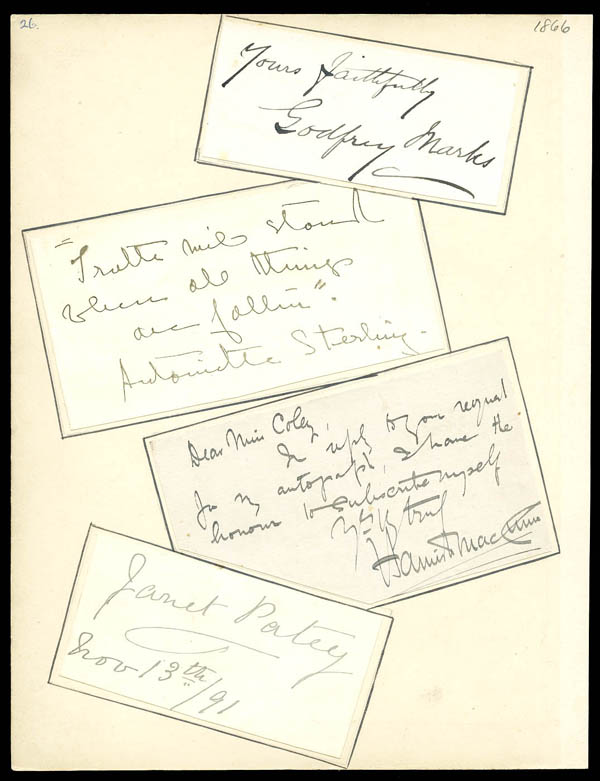 26.
1866
Yours faithfully
Godfrey Marks
"Truth will stand
when all things
are fallin".
Antoinette Sterling.
Dear Miss Coley,
In reply to your request
for my autograph, I have the
honour to subscribe myself
Yrs v. truly
Hamish MacCunn
Janet Patey
Nov 13th/91